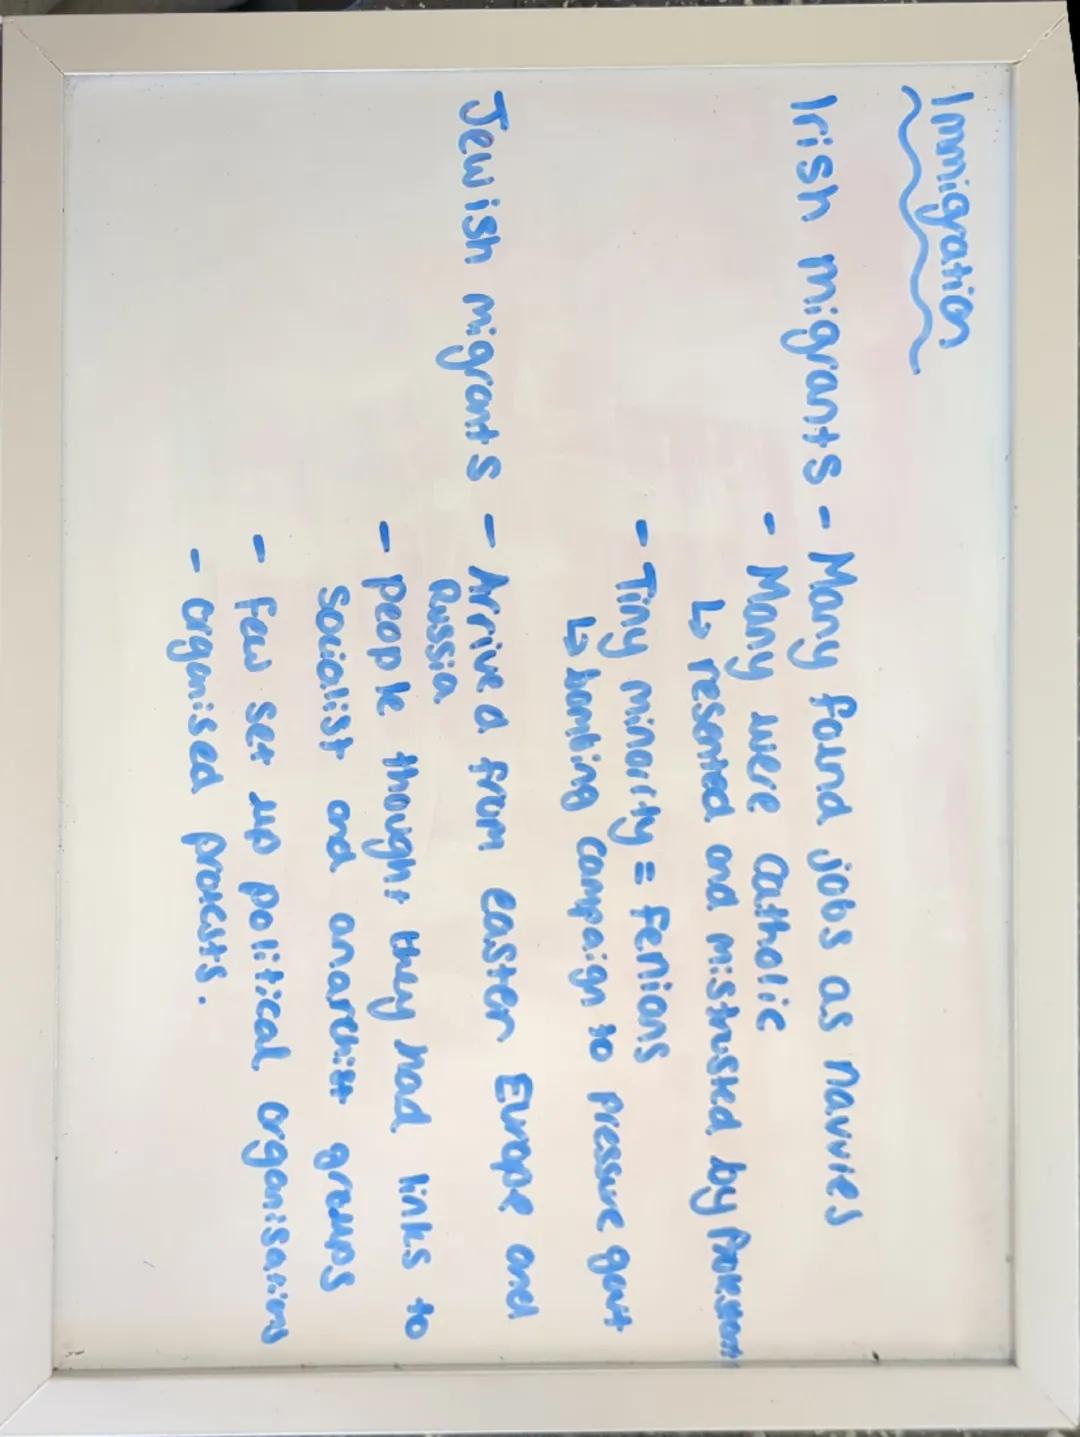 Immigration
Irish migrants - Many found jobs as navvies
- Many were Catholic
↳ resented and mistrusted by Protestant
- Tiny minority = Fenians
↳ bombing campaign to pressure govt
Jewish migrants - Arrived from eastern Europe and
Russia
- people thought they had links to
socialist and anarchist groups
- few set up political organisations
- organised protests.